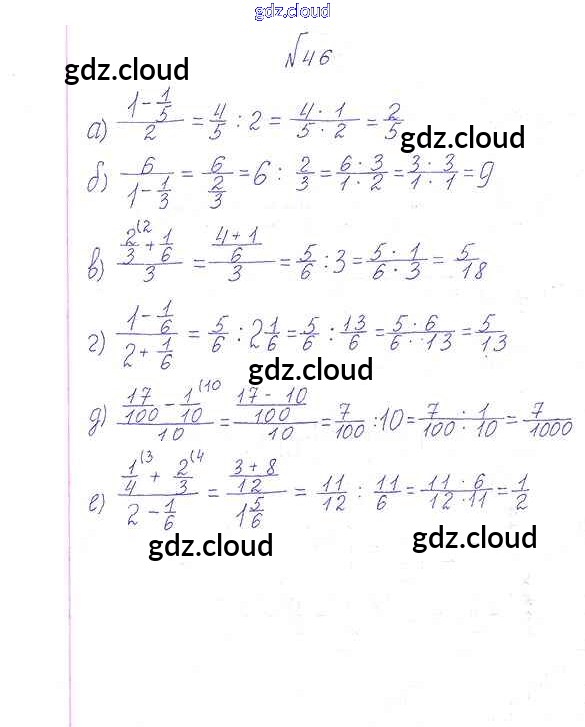 gdz.cloud
№46
gdz.cloud
а) (1 - 1/5)/2 = 4/5 : 2 = (4 · 1)/(5 · 2) = 2/5
gdz.cloud
б) 6/(1 - 1/3) = 6/(2/3) = 6 : 2/3 = (6 · 3)/(1 · 2) = (3 · 3)/(1 · 1) = 9
в) (2/3 (2 + 1/6)/3 = ((4 + 1)/6)/3 = 5/6 : 3 = (5 · 1)/(6 · 3) = 5/18
г) (1 - 1/6)/(2 + 1/6) = 5/6 : 2 1/6 = 5/6 : 13/6 = (5 · 6)/(6 · 13) = 5/13
gdz.cloud
д) (17/100 - 1/10 (10)/10 = ((17 - 10)/100)/10 = 7/100 : 10 = (7 · 1)/(100 · 10) = 7/1000
е) (1/4 (3 + 2/3 (4)/(2 - 1/6) = ((3 + 8)/12)/(1 5/6) = 11/12 : 11/6 = (11 · 6)/(12 · 11) = 1/2
gdz.cloud
gdz.cloud